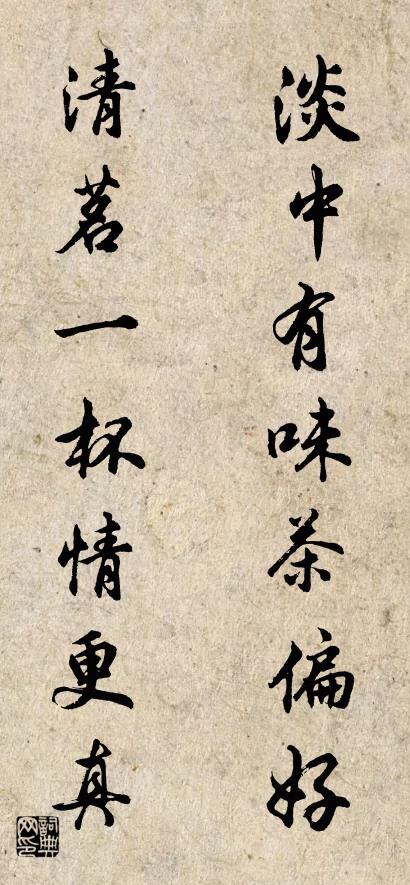 淡中有味茶偏好
清茗一杯情更真
詞典网印